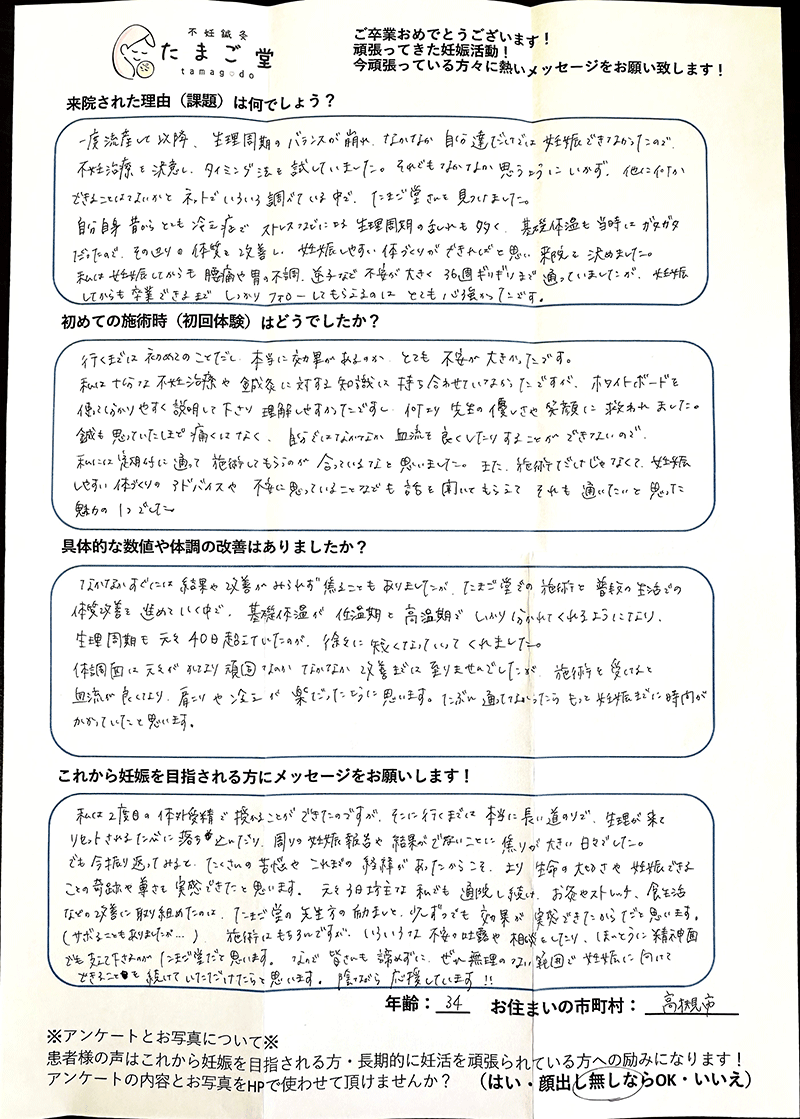 不妊鍼灸
たまご堂
tamagodo
ご卒業おめでとうございます！
頑張ってきた妊娠活動！
今頑張っている方々に熱いメッセージをお願い致します！
来院された理由（課題）は何でしょう？
一度流産して以降、生理周期のバランスが崩れ、なかなか自分達だけでは妊娠できなかったので、
不妊治療を決意し、タイミング法を試していました。それでもなかなか思うようにいかず、他に何か
できることはないかとネットでいろいろ調べている中で、たまご堂さんを見つけました。
自分自身昔からとても冷え症で ストレスなどによる 生理周期の乱れも多く、基礎体温も当時はガタガタ
だったので、その辺りの体質を改善し、妊娠しやすい体づくりができればと思い来院を決めました。
私は妊娠してからも腰痛や胃の不調、逆子など不安が大きく36週ギリギリまで通っていましたが、妊娠
してからも卒業できるまで しっかりフォローしてもらえるのは とても心強かったです。
初めての施術時（初回体験）はどうでしたか？
行くまでは初めてのことだし、本当に効果があるのか、とても不安が大きかったです。
私は十分な不妊治療や鍼灸に対する知識は持ち合わせていなかったですが、ホワイトボードを
使って分かりやすく説明して下さり理解しやすかったですし、何より先生の優しさや笑顔に救われました。
鍼も思っていたほど痛くはなく、自分ではなかなか血流を良くしたりすることができないので、
私には定期的に通って施術してもらうのが合っているなと思いました。また、施術だけじゃなくて、妊娠
しやすい体づくりのアドバイスや不安に思っていることなども話を聞いてもらえて それも通いたいと思った
魅力の1つでした
具体的な数値や体調の改善はありましたか？
なかなかすぐには結果や改善がみられず焦ることもありましたが、たまご堂での施術と普段の生活での
体質改善を進めていく中で、基礎体温が低温期と高温期でしっかり分かれてくれるようになり、
生理周期も元々40日超えていたのが、徐々に短くなっていってくれました。
体調面は元々がかなり頑固なのかなかなか改善までは至りませんでしたが、施術を受けると
血流が良くなり、肩こりや冷えが楽だったように思います。たぶん通ってなかったらもっと妊娠までに時間が
かかっていたと思います。
これから妊娠を目指される方にメッセージをお願いします！
私は2度目の体外受精で授かることができたのですが、そこに行くまでは本当に長い道のりで、生理が来て
リセットされるたびに落ち込んだり、周りの妊娠報告や結果がでないことに焦りが大きい日々でした。
でも今振り返ってみると、たくさんの苦悩やこれまでの経緯があったからこそ、より生命の大切さや妊娠できる
ことの奇跡や尊さを実感できたと思います。元々3日坊主な私でも通院し続け、お灸やストレッチ、食生活
などの改善に取り組めたのは、たまご堂の先生方の励ましと、少しずつでも効果が実感できたからだと思います。
（サボることもありましたが…）施術はもちろんですが、いろいろな不安の吐露や相談をしたり、ほんとうに精神面
でも支えて下さるのがたまご堂だと思います。なので皆さんも諦めずに、ぜひ無理のない範囲で妊娠に向けて
できることを続けていただけたらと思います。陰ながら応援しています！！
年齢：34 お住まいの市町村：高槻市
※アンケートとお写真について※
患者様の声はこれから妊娠を目指される方・長期的に妊活を頑張られている方への励みになります！
アンケートの内容とお写真をHPで使わせて頂けませんか？ （はい・顔出し無しならOK・いいえ）